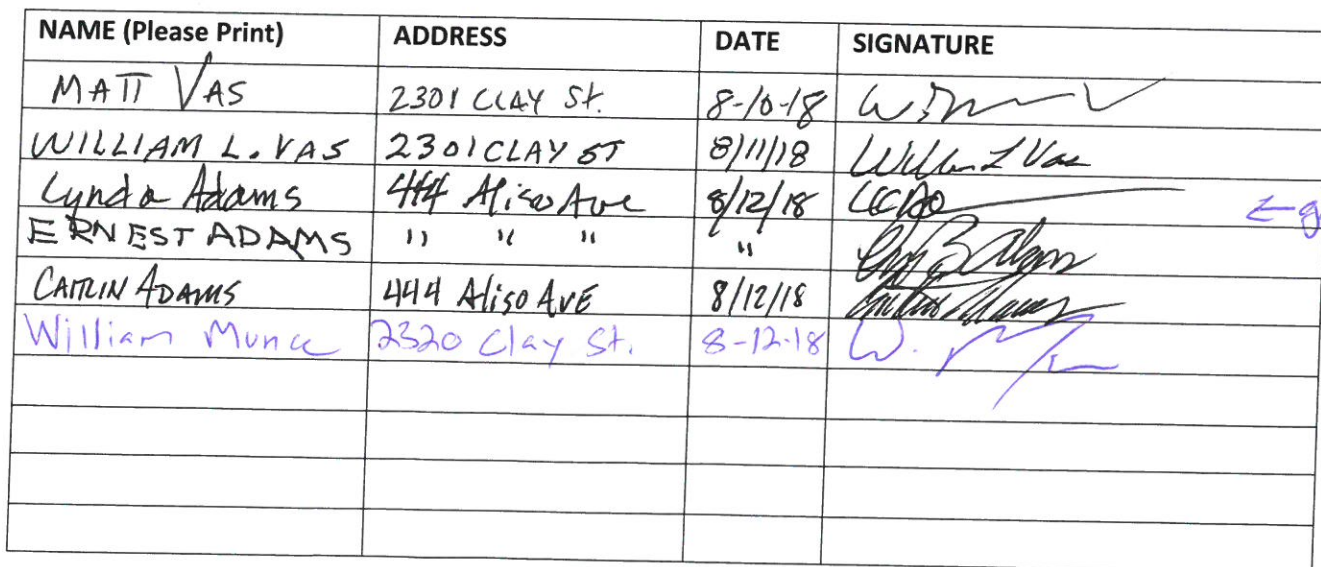 NAME (Please Print) ADDRESS DATE SIGNATURE
MATT VAS 2301 CLAY St. 8-10-18
WILLIAM L. VAS 2301 CLAY ST 8/11/18 William L Vas
Lynda Adams 444 Aliso Ave 8/12/18
ERNEST ADAMS " " " "
CAITLIN ADAMS 444 Aliso AVE 8/12/18
William Munce 2320 Clay St. 8-12-18 W.